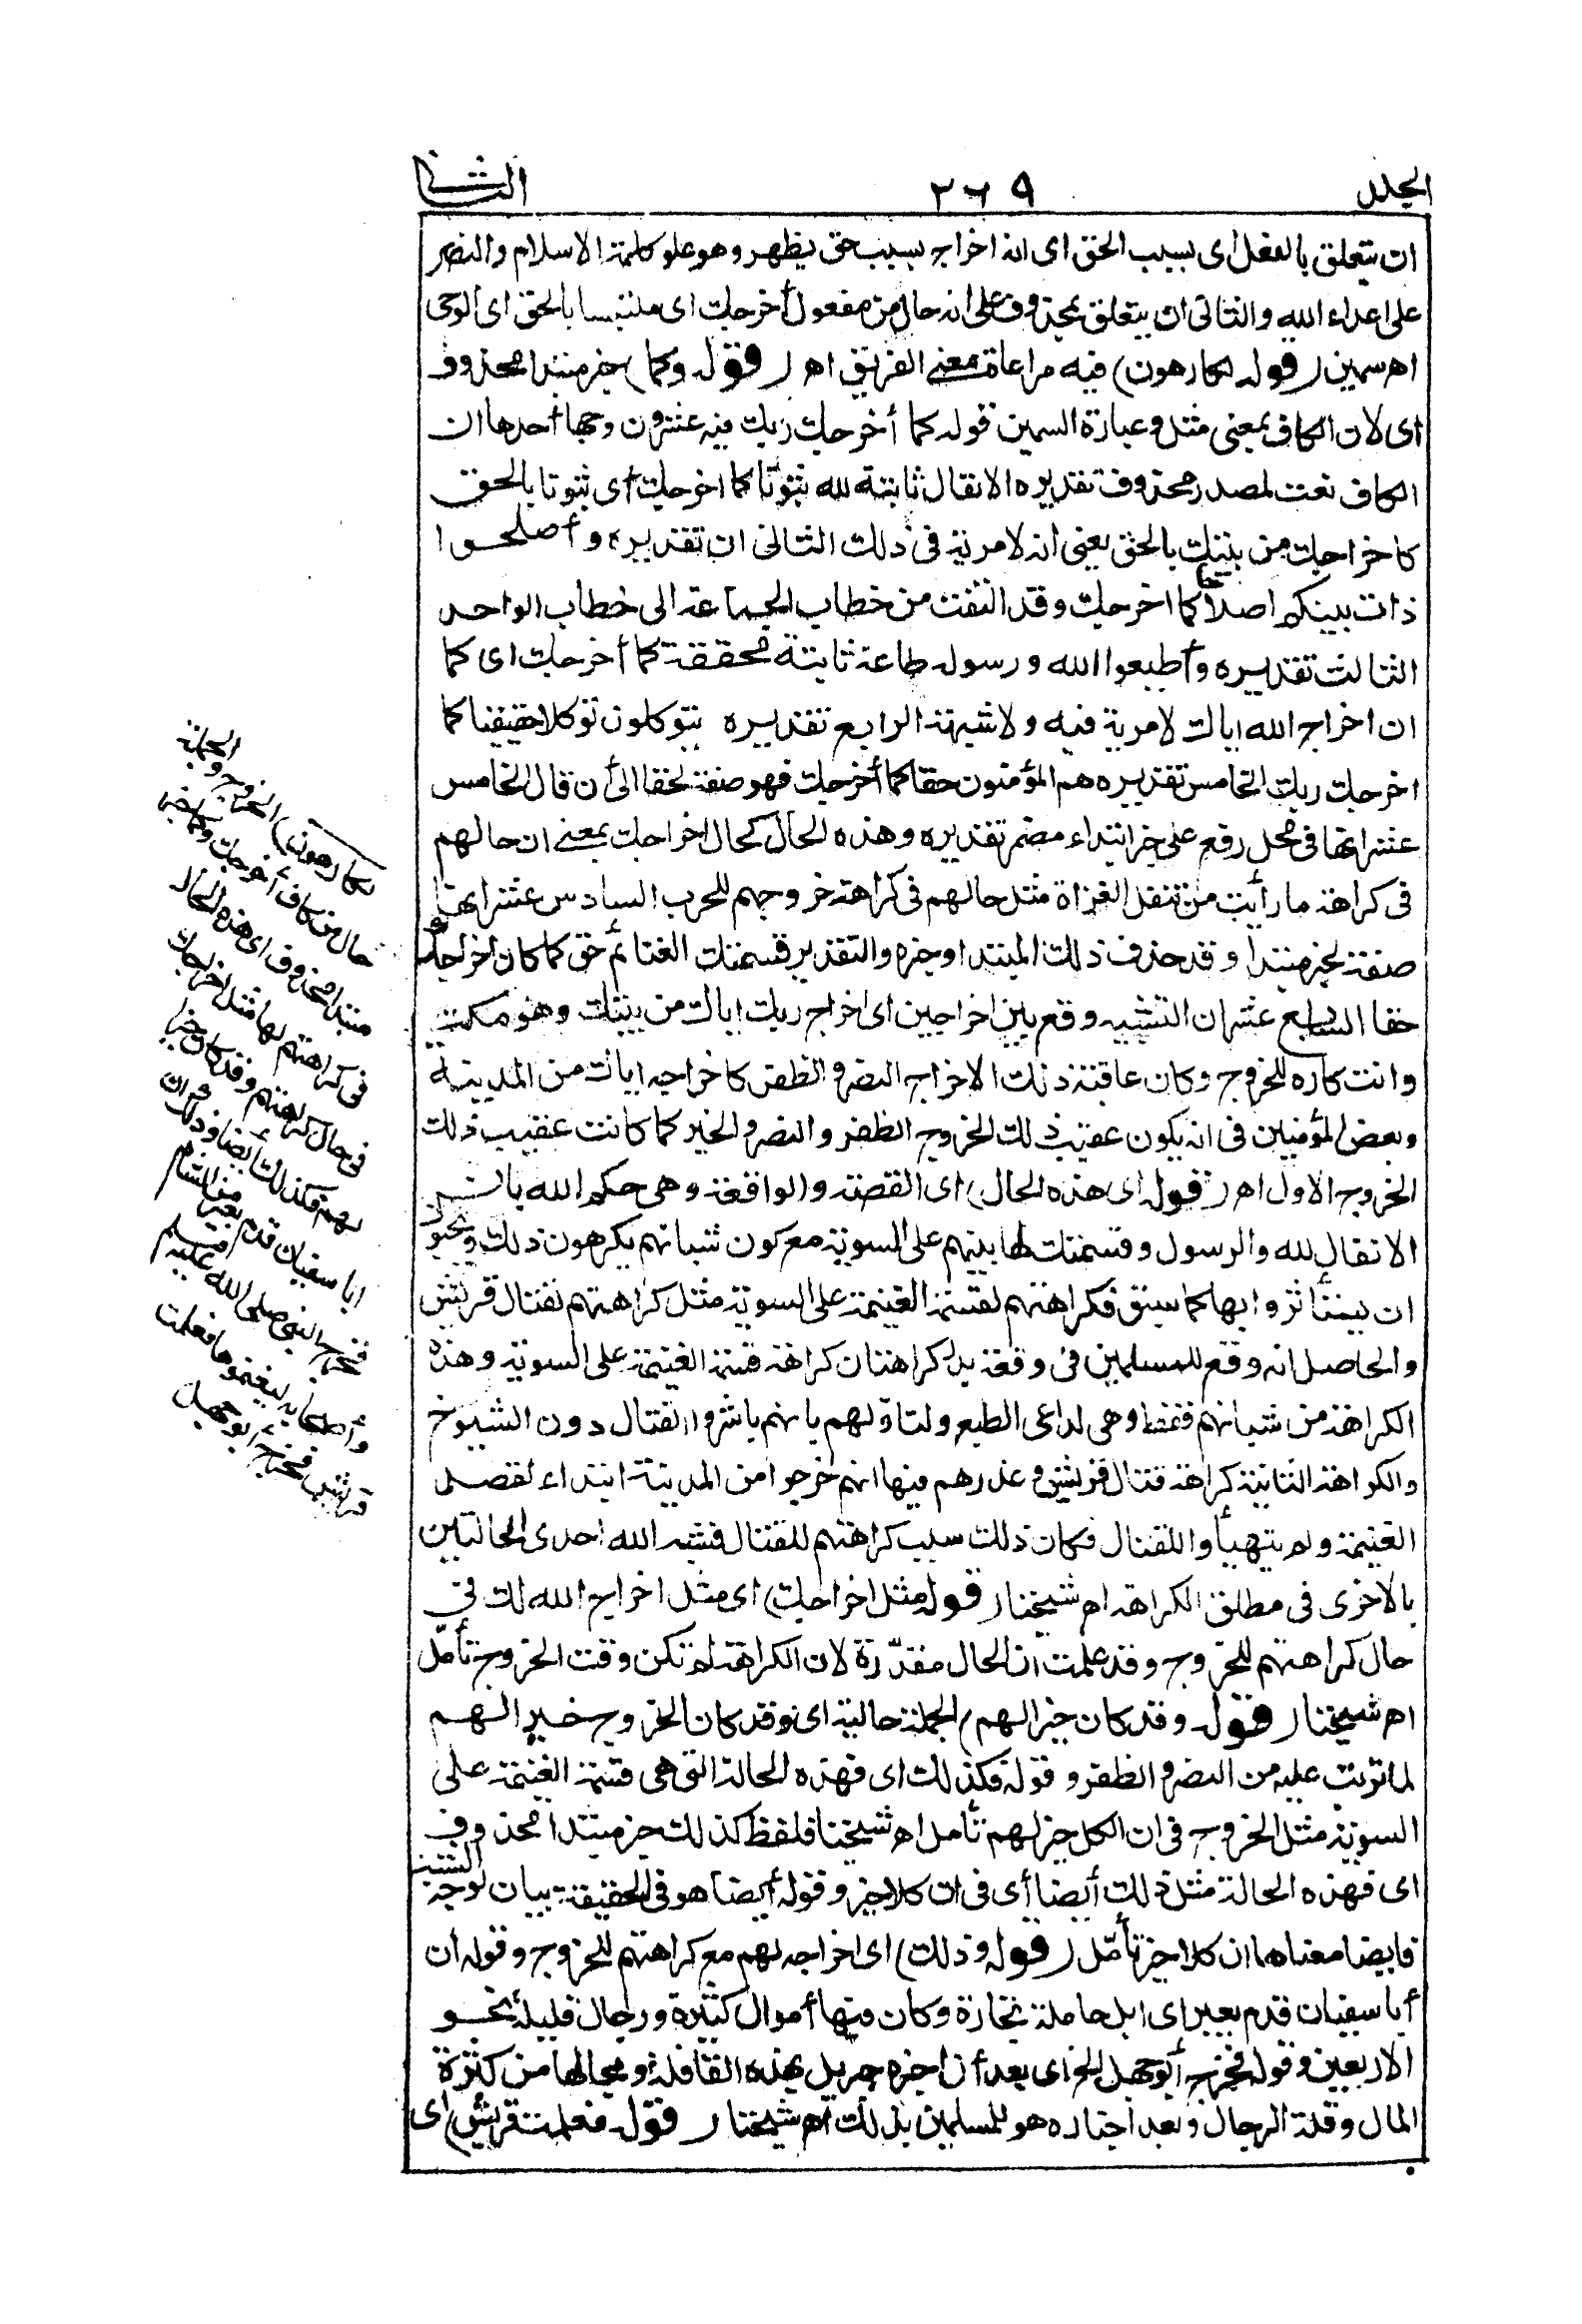 الجلد ٢٦٩ الثانى
ان يتعلق بالفعل اى بسبب الحق اى انه اخراج بسبب حق يظهر وهو علو كلمة الاسلام والنصر
على اعداء الله والثانى ان يتعلق بمحذوف على انه حال من مفعول أخرجك اى ملتبسا بالحق اى الوحى
اه سمين (قوله لكارهون) فيه مراعاة معنى الفريق اه (قوله وكما) خبر مبتدا محذوف
اى لان الكاف بمعنى مثل وعبارة السمين قوله كما أخرجك ربك فيه عشرون وجها أحدها ان
الكاف نعت لمصدر محذوف تقديره الانفال ثابتة لله ثبوتا كما اخرجك أى ثبوتا بالحق
كاخراجك من بيتك بالحق يعنى انه لا مرية فى ذلك الثانى ان تقديره وأصلحوا
ذات بينكم اصلاحا كما اخرجك وقد التفت من خطاب الجماعة الى خطاب الواحد
الثالث تقديره وأطيعوا الله ورسوله طاعة ثابتة محققة كما أخرجك اى كما
ان اخراج الله اياك لا مرية فيه ولا شبهة الرابع تقديره يتوكلون توكلا حقيقيا كما
اخرجك ربك الخامس تقديره هم المؤمنون حقا كما أخرجك فهو صفة لحقا الى أن قال الخامس
عشر انها فى محل رفع على خبر ابتداء مضمر تقديره وهذه الحال كحال اخراجك بمعنى ان حالهم
فى كراهة ما رأيت من تنفل الغزاة مثل حالهم فى كراهة خروجهم للحرب السادس عشر انها
صفة لخبر مبتدا وقد حذف ذلك المبتدا وخبره والتقدير قسمتك الغنائم حق كما كان اخراجك
حقا السابع عشر ان التشبيه وقع بين اخراجين اى اخراج ربك اياك من بيتك وهو مكة
وانت كاره للخروج وكان عاقبة ذلك الاخراج النصر والظفر كاخراجه اياك من المدينة
وبعض المؤمنين فى انه يكون عقيب ذلك الخروج الظفر والنصر والخير كما كانت عقيب ذلك
الخروج الاول اه (قوله اى هذه الحال) اى القصة والواقعة وهى حكم الله بان
الانفال لله والرسول وقسمتك لها بينهم على السوية مع كون شبانهم يكرهون ذلك ويحبون
ان يستأثروا بها كما سبق فكراهتهم لقسمة الغنيمة على السوية مثل كراهتهم لقتال قريش
والحاصل انه وقع للمسلمين فى وقعة بدر كراهتان كراهة قسمة الغنيمة على السوية وهذه
الكراهة من شبانهم فقط وهى لداعى الطبع ولتأولهم بانهم باشروا القتال دون الشيوخ
والكراهة الثانية كراهة قتال قريش وعذرهم فيها انهم خرجوا من المدينة ابتداء لقصد
الغنيمة ولم يتهيأوا للقتال فكان ذلك سبب كراهتهم للقتال فشبه الله احدى الحالتين
بالاخرى فى مطلق الكراهة اه شيخنا (قوله مثل اخراجك) اى مثل اخراج الله لك فى
حال كراهتهم للخروج وقد علمت ان الحال مقدّرة لان الكراهة لم تكن وقت الخروج تأمّل
اه شيخنا (قوله وقد كان خيرا لهم) الجملة حالية اى وقد كان الخروج خيرا لهم
لما ترتب عليه من النصر والظفر وقوله فكذلك اى فهذه الحالة التى هى قسمة الغنيمة على
السوية مثل الخروج فى ان الكل خير لهم تأمل اه شيخنا فلفظ كذلك خبر مبتدا محذوف
اى فهذه الحالة مثل ذلك أيضا أى فى ان كلا خير وقوله أيضا هو فى الحقيقة بيان لوجه الشبه
فايضا معناها ان كلا خير تأمّل (قوله وذلك) اى اخراجه لهم مع كراهتهم للخروج وقوله ان
أبا سفيان قدم بعير اى ابل حاملة تجارة وكان فيها أموال كثيرة ورجال قليلة نحو
الاربعين وقوله فخرج أبو جهل الخ اى بعد أن اخبره جبريل بهذه القافلة وبحالها من كثرة
المال وقلة الرجال وبعد اخباره هو للمسلمين بذلك اه شيخنا (قوله فعلمت قريش) اى
لكارهون) الخروج والجملة
حال من كاف أخرجك وكما خبر
مبتدا محذوف اى هذه الحال
فى كراهتهم لها مثل اخراجك
فى حال كراهتهم وقد كان خيرا
لهم فكذلك أيضا وذلك ان
ابا سفيان قدم بعير من الشام
فخرج النبى صلى الله عليه وسلم
وأصحابه ليغنموها فعلمت
قريش فخرج أبو جهل